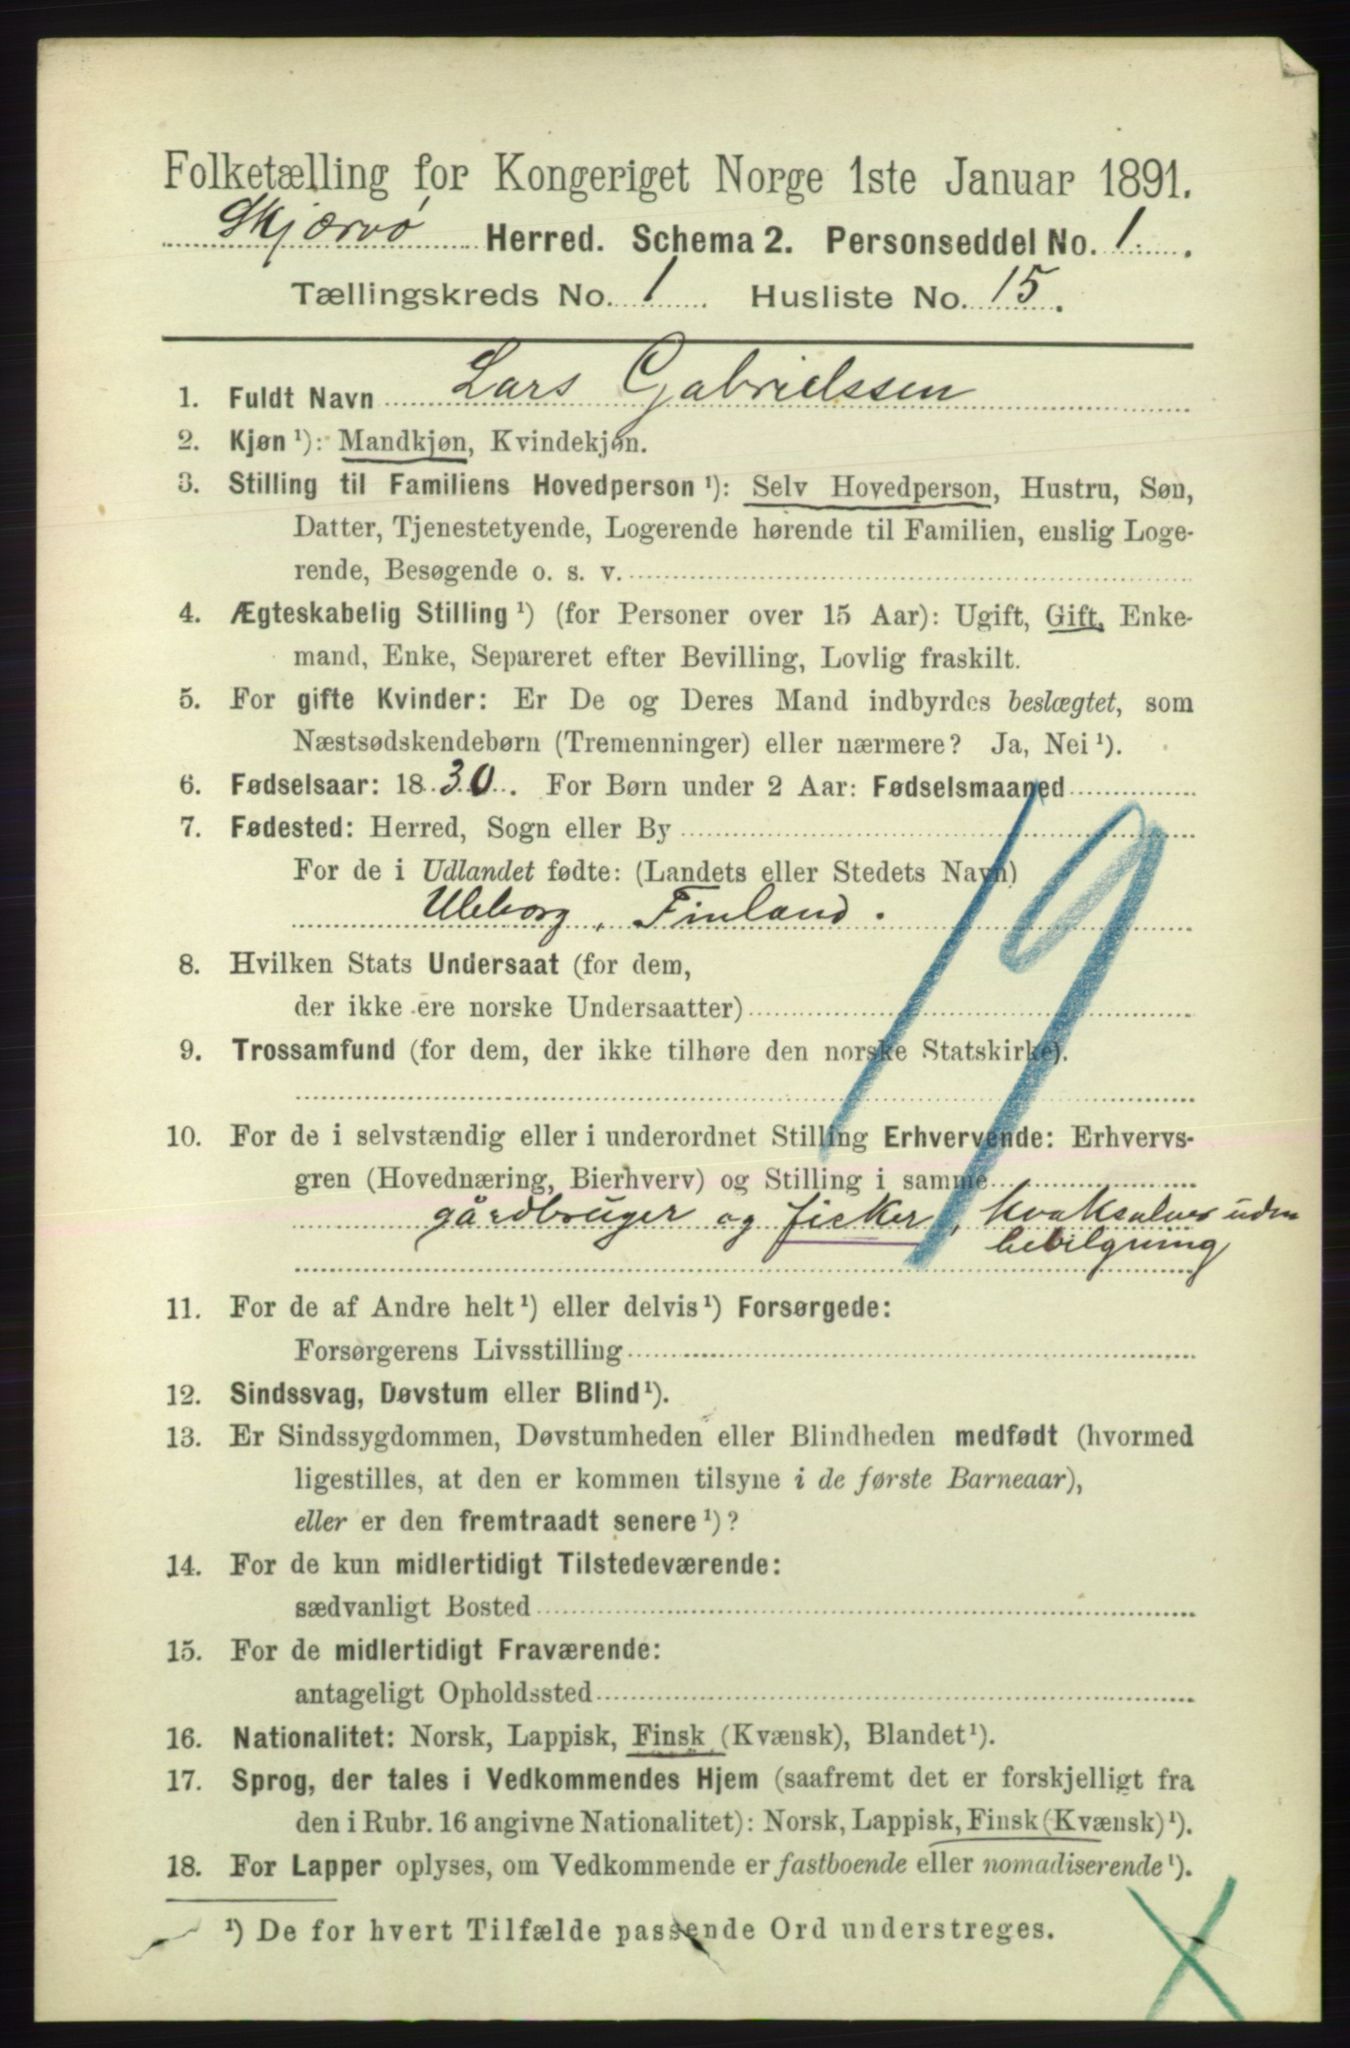 Folketælling for Kongeriget Norge 1ste Januar 1891.
Skjærvø Herred. Schema 2. Personseddel No. 1.
Tællingskreds No. 1 Husliste No. 15.
1. Fuldt Navn Lars Gabrielssen
2. Kjøn ¹): Mandkjøn, Kvindekjøn.
3. Stilling til Familiens Hovedperson ¹): Selv Hovedperson, Hustru, Søn,
Datter, Tjenestetyende, Logerende hørende til Familien, enslig Loge-
rende, Besøgende o. s. v.
4. Ægteskabelig Stilling ¹) (for Personer over 15 Aar): Ugift, Gift, Enke-
mand, Enke, Separeret efter Bevilling, Lovlig fraskilt.
5. For gifte Kvinder: Er De og Deres Mand indbyrdes beslægtet, som
Næstsødskendebørn (Tremenninger) eller nærmere? Ja, Nei ¹).
6. Fødselsaar: 1830. For Børn under 2 Aar: Fødselsmaaned
7. Fødested: Herred, Sogn eller By
For de i Udlandet fødte: (Landets eller Stedets Navn)
Uleborg, Finland.
19
8. Hvilken Stats Undersaat (for dem,
der ikke ere norske Undersaatter)
9. Trossamfund (for dem, der ikke tilhøre den norske Statskirke).
10. For de i selvstændig eller i underordnet Stilling Erhvervende: Erhvervs-
gren (Hovednæring, Bierhverv) og Stilling i samme
gårdbruger og ficker, kvaksalver uden
bebilgning
11. For de af Andre helt ¹) eller delvis ¹) Forsørgede:
Forsørgerens Livsstilling
12. Sindssvag, Døvstum eller Blind ¹).
13. Er Sindssygdommen, Døvstumheden eller Blindheden medfødt (hvormed
ligestilles, at den er kommen tilsyne i de første Barneaar),
eller er den fremtraadt senere ¹)?
14. For de kun midlertidigt Tilstedeværende:
sædvanligt Bosted
15. For de midlertidigt Fraværende:
antageligt Opholdssted
16. Nationalitet: Norsk, Lappisk, Finsk (Kvænsk), Blandet ¹).
17. Sprog, der tales i Vedkommendes Hjem (saafremt det er forskjelligt fra
den i Rubr. 16 angivne Nationalitet): Norsk, Lappisk, Finsk (Kvænsk) ¹).
18. For Lapper oplyses, om Vedkommende er fastboende eller nomadiserende ¹).
¹) De for hvert Tilfælde passende Ord understreges.